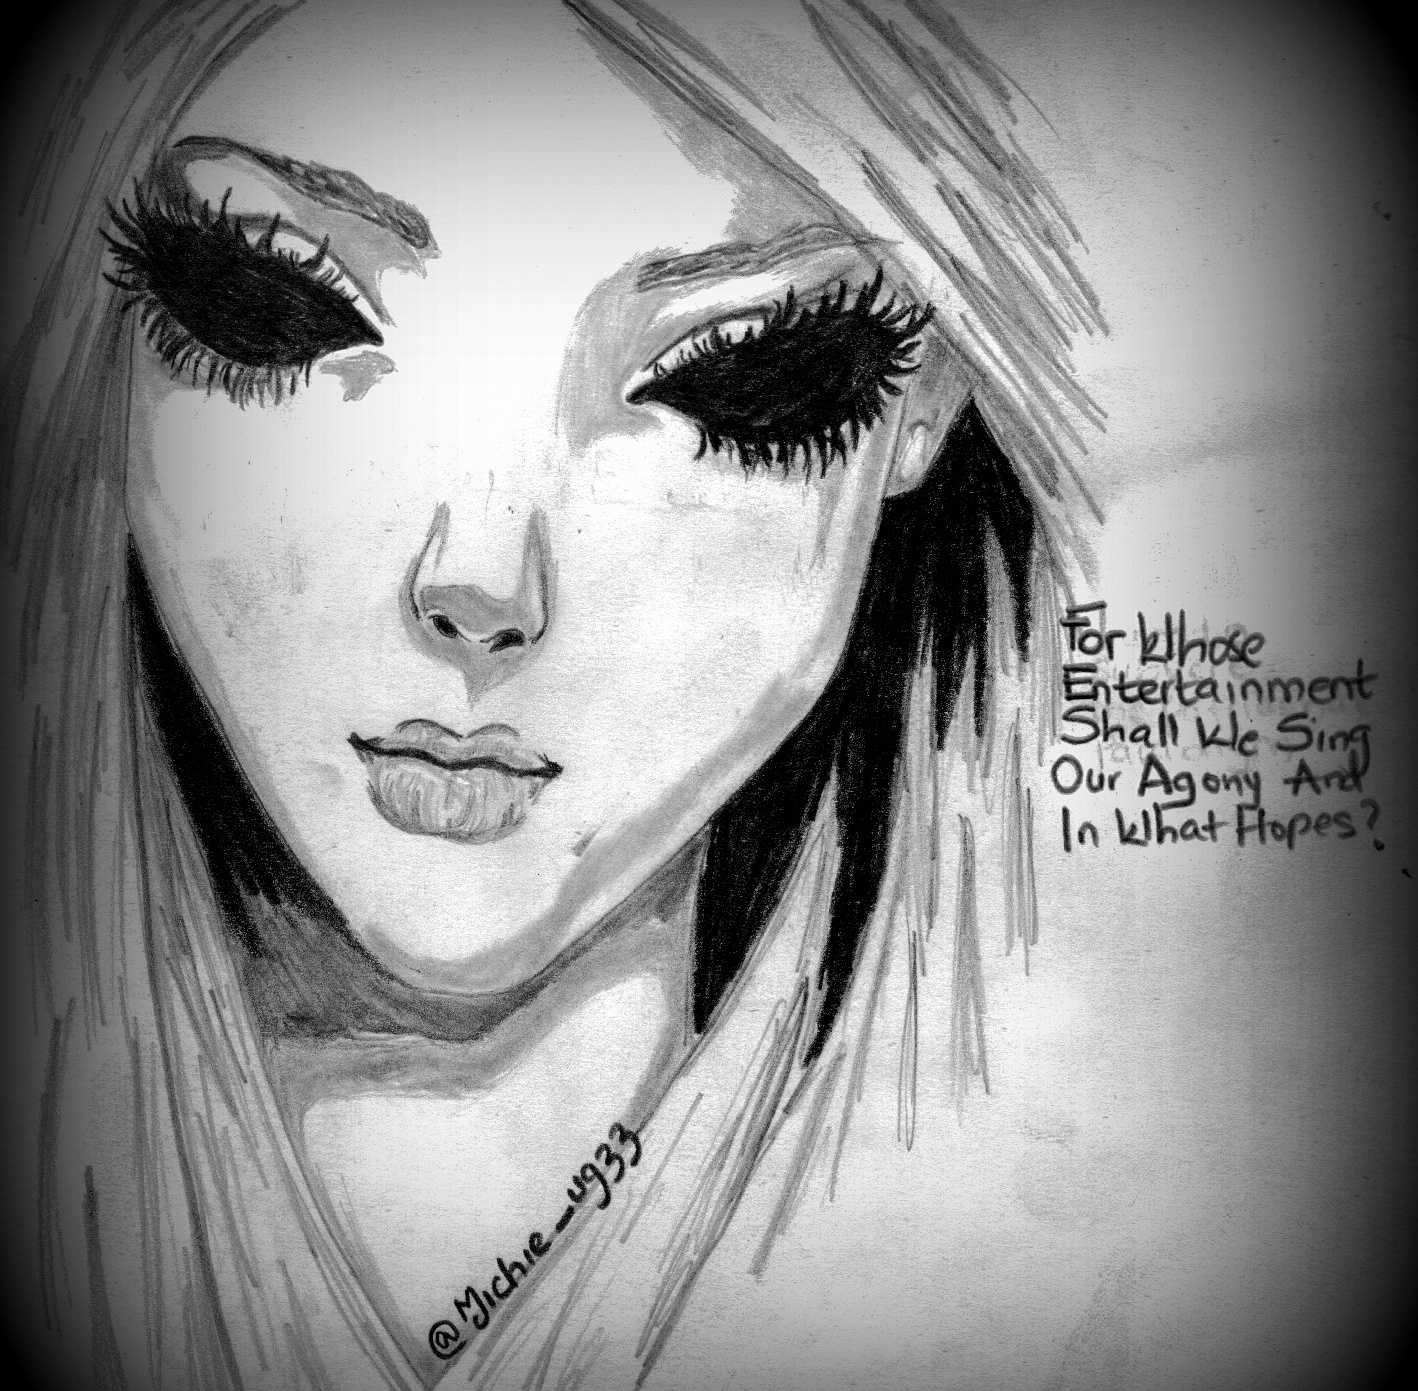 For Whose
Entertainment
Shall We Sing
Our Agony And
In What Hopes?
@Michie_ug33